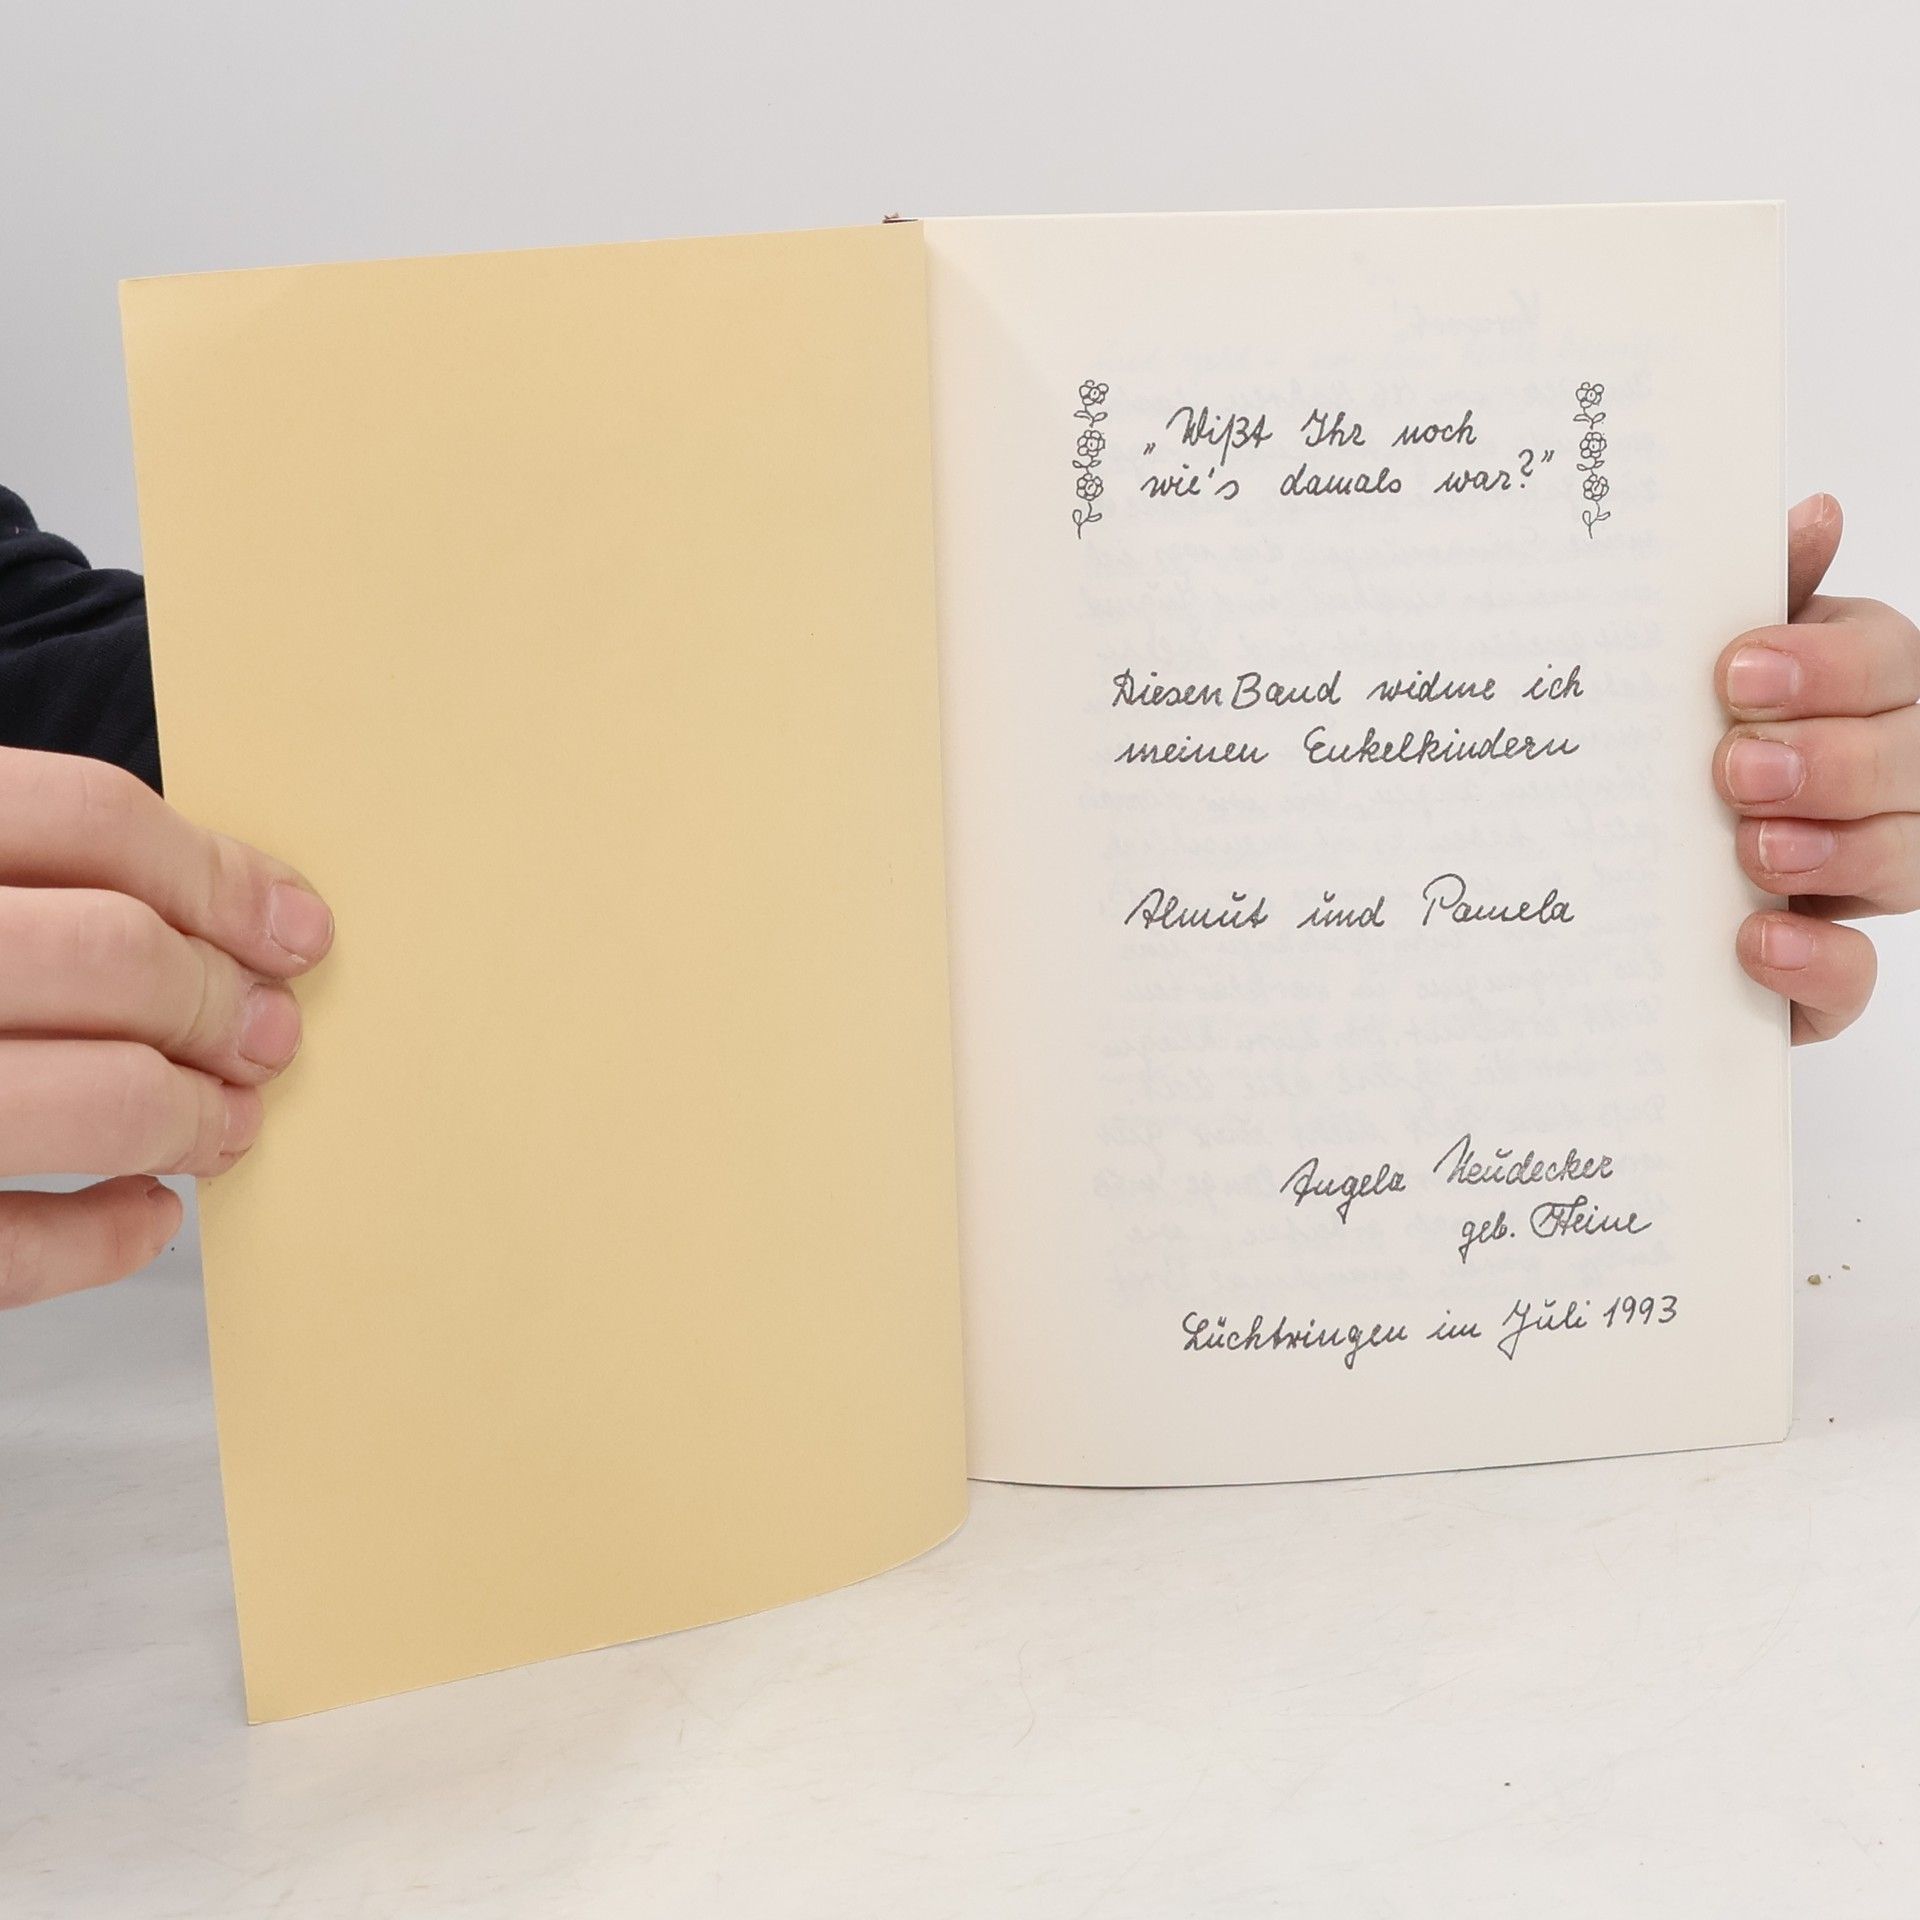 „Wißt Ihr noch
wie's damals war?"
Diesen Band widme ich
meinen Enkelkindern
Almut und Pamela
Angela Neudecker
geb. Heine
Lüchtringen im Juli 1993